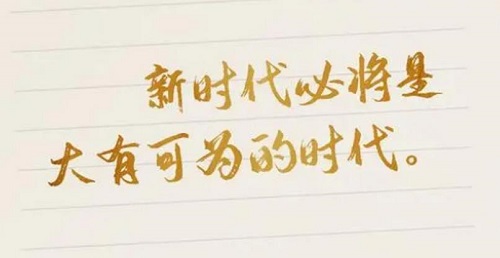 新时代必将是
大有可为的时代。